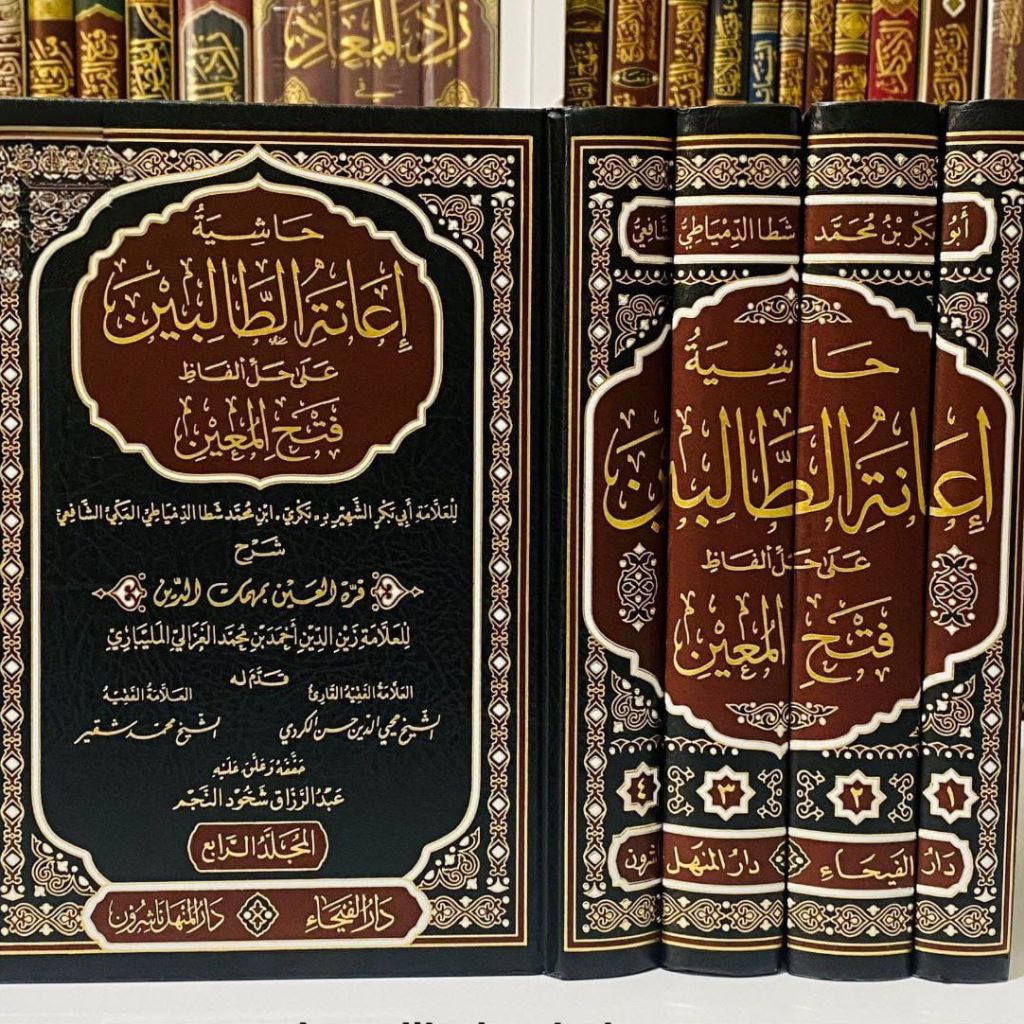 زاد المعاد
في
حَاشِيَةُ
إِعَانَةِ الطَّالِبِيْن
عَلَى حَلِّ أَلفَاظِ
فَتْحِ المُعِيْنِ
لِلعَلَّامَة أَبي بَكْر الشَّهِيْر بـ « بَكْري » ابْن مُحَمَّد شَطَا الدِّمْيَاطِيّ المَكِيّ الشَّافِعِيّ
شَرْح
قرّة العَيْن بمهمات الدِّين
لِلعَلَّامَة زَيْن الدِّيْن أَحْمَد بْن مُحَمَّد الغَزَالِيّ المَليبَارِيّ
قَدَّمَ لَه
العَلَّامَةُ الفَقِيْهُ القَارِئُ
العَلَّامَةُ الفَقِيْهُ
الشيخ محيي الدين حسن الكردي
الشيخ محمد شقير
حَقَّقَهُ وَعَلَّقَ عَلَيْهِ
عَبْدُ الرَّزَّاق شَحُّود النَّجْم
المُجَلَّدُ الرَّابِع
دَارُ الفَيْحَاء
دَارُ المَنْهَل نَاشِرُون
أَبُو بَكْر بْنُ مُحَمَّد شَطَا الدِّمْيَاطِيّ الشَّافِعِيّ
حَاشِيَةُ
إِعَانَةِ الطَّالِبِيْن
عَلَى حَلِّ أَلفَاظِ
فَتْحِ المُعِيْنِ
١ ٢ ٣ ٤
دَارُ الفَيْحَاء دَارُ المَنْهَل شرون